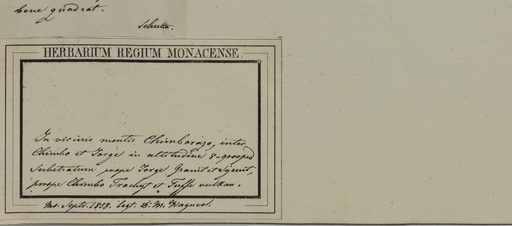 bene quadrat.
Schultz.
HERBARIUM REGIUM MONACENSE.
In vicinis montis Chimborazo, inter
Chimbo et Jorge in altitudine 8-9000ped
Substratum prope Jorge Granit et Syenit,
prope Chimbo Trachyt et Tuffe vulkan.
Ms. Septr. 1858. legt. Dr. M. Wagner.